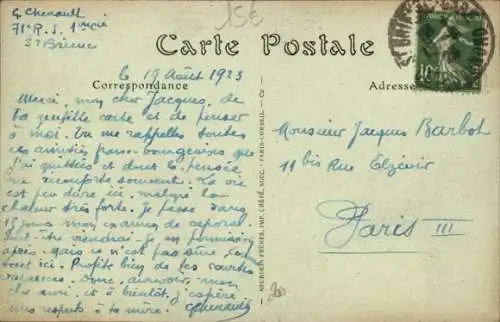 G Chenault
71e R.S. 1ère Cie
St Brieuc
15€
Carte Postale
le 19 Août 1923
Correspondance
Adresse
10
Merci, mon cher Jacques, de
ta gentille carte et de penser
à moi. Tu me rappelles toutes
ces amitiés bourgeoises que
j'ai quittées et dont la pensée
me réconforte souvent. La vie
est peu dure ici, malgré la
chaleur très forte. Je passe dans
15 jours mon examen de caporal.
Peut-être viendrai-je en permission
après. Mais ce n'est pas
ici. Profite bien de tes courtes
vacances. Donc, au revoir, mon
cher ami, et à bientôt, j'espère
mes respects à ta mère. GChenault
Monsieur Jacques Barbot
11 bis Rue Elzévir
Paris III
NEURDEIN FRÈRES, IMP. CRÉTÉ, SUCC. - PARIS-CORBEIL